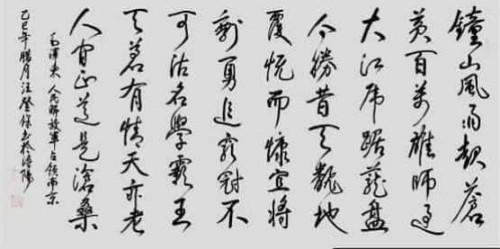 鐘山風雨起蒼
黃百萬雄師過
大江虎踞龍盤
今勝昔天翻地
覆慨而慷宜將
剩勇追窮寇不
可沽名學霸王
天若有情天亦老
人间正道是滄桑
毛澤東 人民解放軍占領南京
巳年腊月汪登书於洛陽